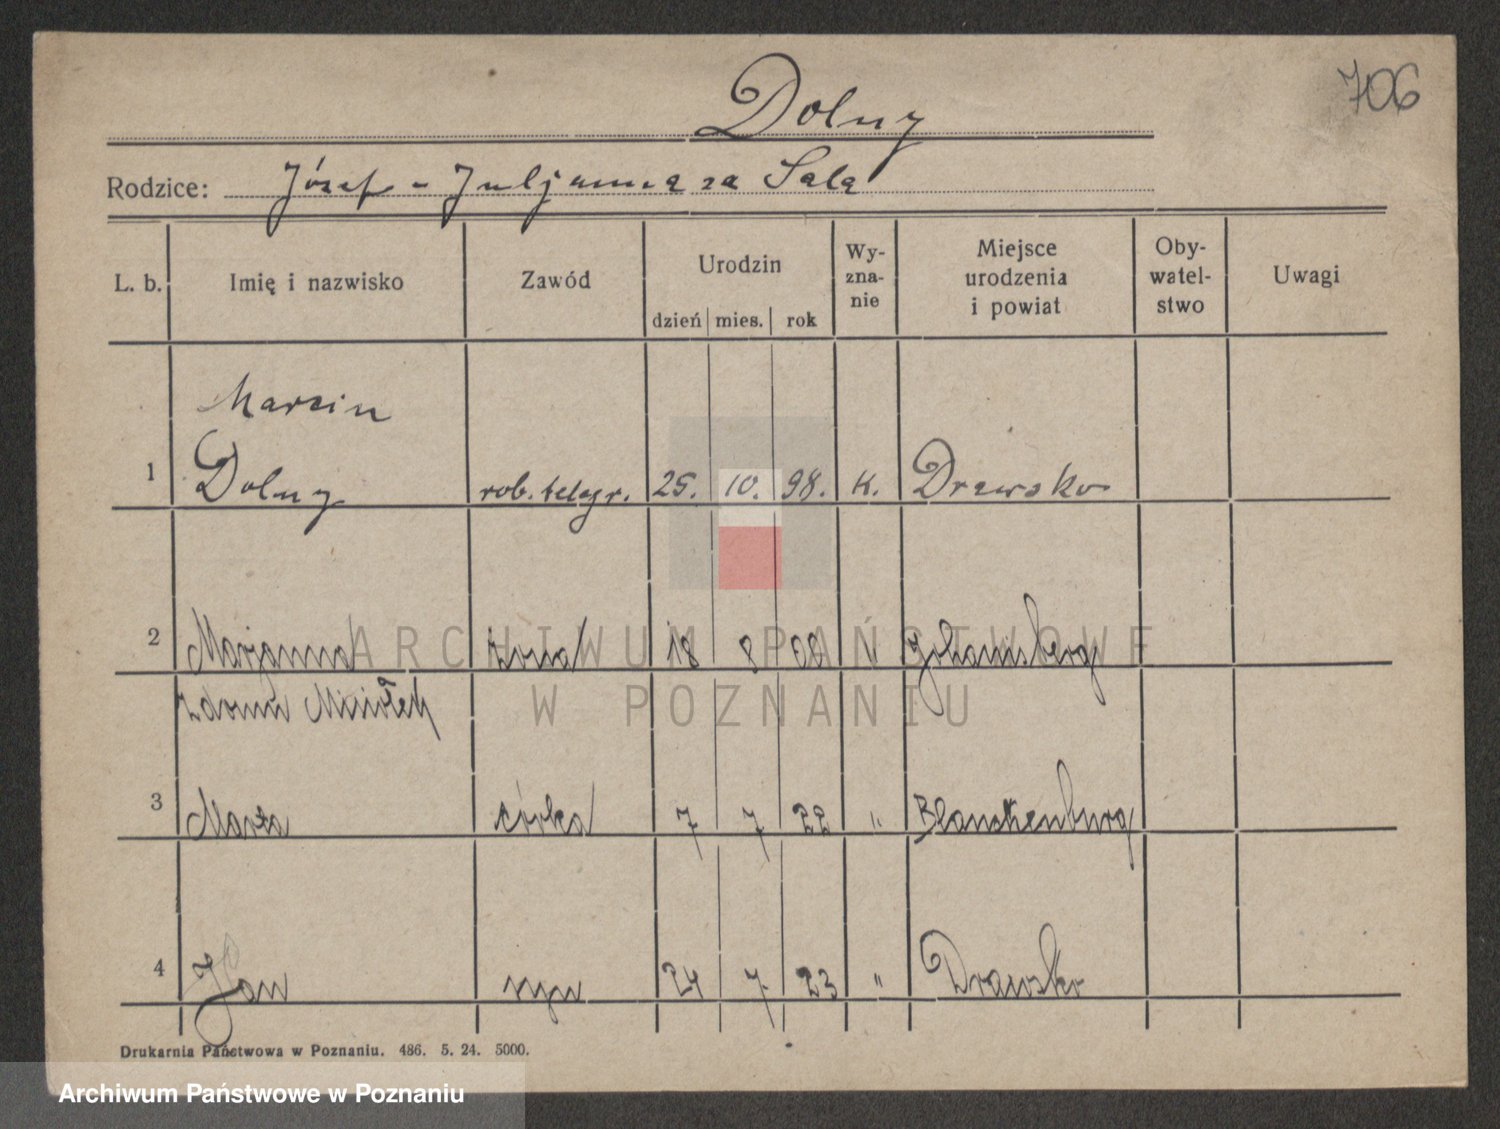 706
Dolny
Rodzice: Józef - Juljanna za Sala
L. b. Imię i nazwisko Zawód Urodzin Wy-zna-nie Miejsce urodzenia i powiat Oby-watel-stwo Uwagi
dzień mies. rok
Marcin
1 Dolny rob. telegr. 25. 10. 98. K. Drawsko
2 Marjanna żona 18 8 08 " Johannisberg
z domu
3 Marta córka 7 7 22 " Blankenburg
4 Jan syn 24 7 23 " Drawsko
Drukarnia Państwowa w Poznaniu. 486. 5. 24. 5000.
ARCHIWUM PAŃSTWOWE
W POZNANIU
Archiwum Państwowe w Poznaniu